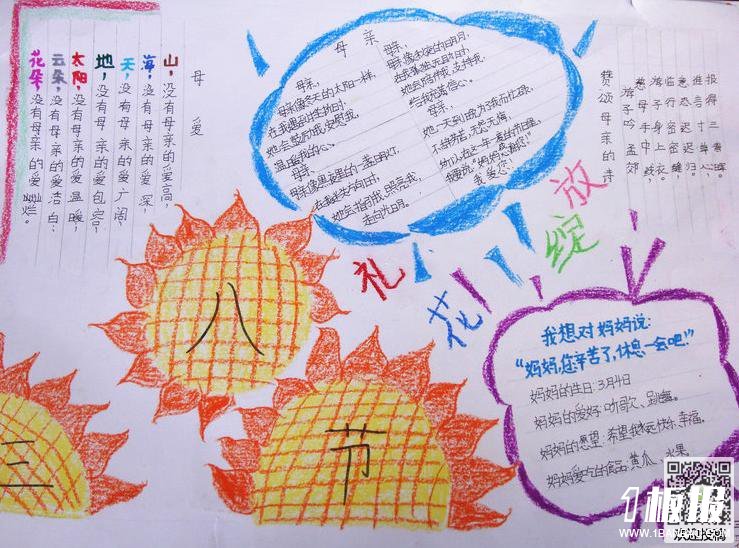 母爱
山，没有母亲的爱高，
海，没有母亲的爱深，
天，没有母亲的爱广阔，
地，没有母亲的爱包容，
太阳，没有母亲的爱温暖，
云朵，没有母亲的爱洁白，
花朵，没有母亲的爱灿烂。
母亲
母亲，
母亲像冬天的太阳一样，
在我遇到
她会鼓励我，安慰我，
温暖我的心。
母亲，
母亲像黑夜里的一盏明灯，
在我迷失方向时，
她会指引我，照亮我，
走向光明。
母亲，
母亲像
在我孤独无助时，
她会陪伴我，支持我，
给我
信心。
母亲，
她一天到晚为了我而忙碌，
不怕辛苦，无怨无悔，
所以，在这一年一度的节日里，
我要说：“妈妈，
我爱您！”
赞颂母亲的诗
游子吟 孟郊
慈母手中线，
游子身上衣。
临行密密缝，
意恐迟迟归。
谁言寸草心，
报得三春晖。
礼花绽放
三八节
我想对妈妈说：
“妈妈，您辛苦了，休息一会吧！”
妈妈的生日：3月4日
妈妈的爱好：听歌、跳舞。
妈妈的愿望：希望我永远快乐、幸福。
妈妈爱吃的食品：黄瓜、水果
1板报
WWW.1BANBAO.COM
欢迎投稿